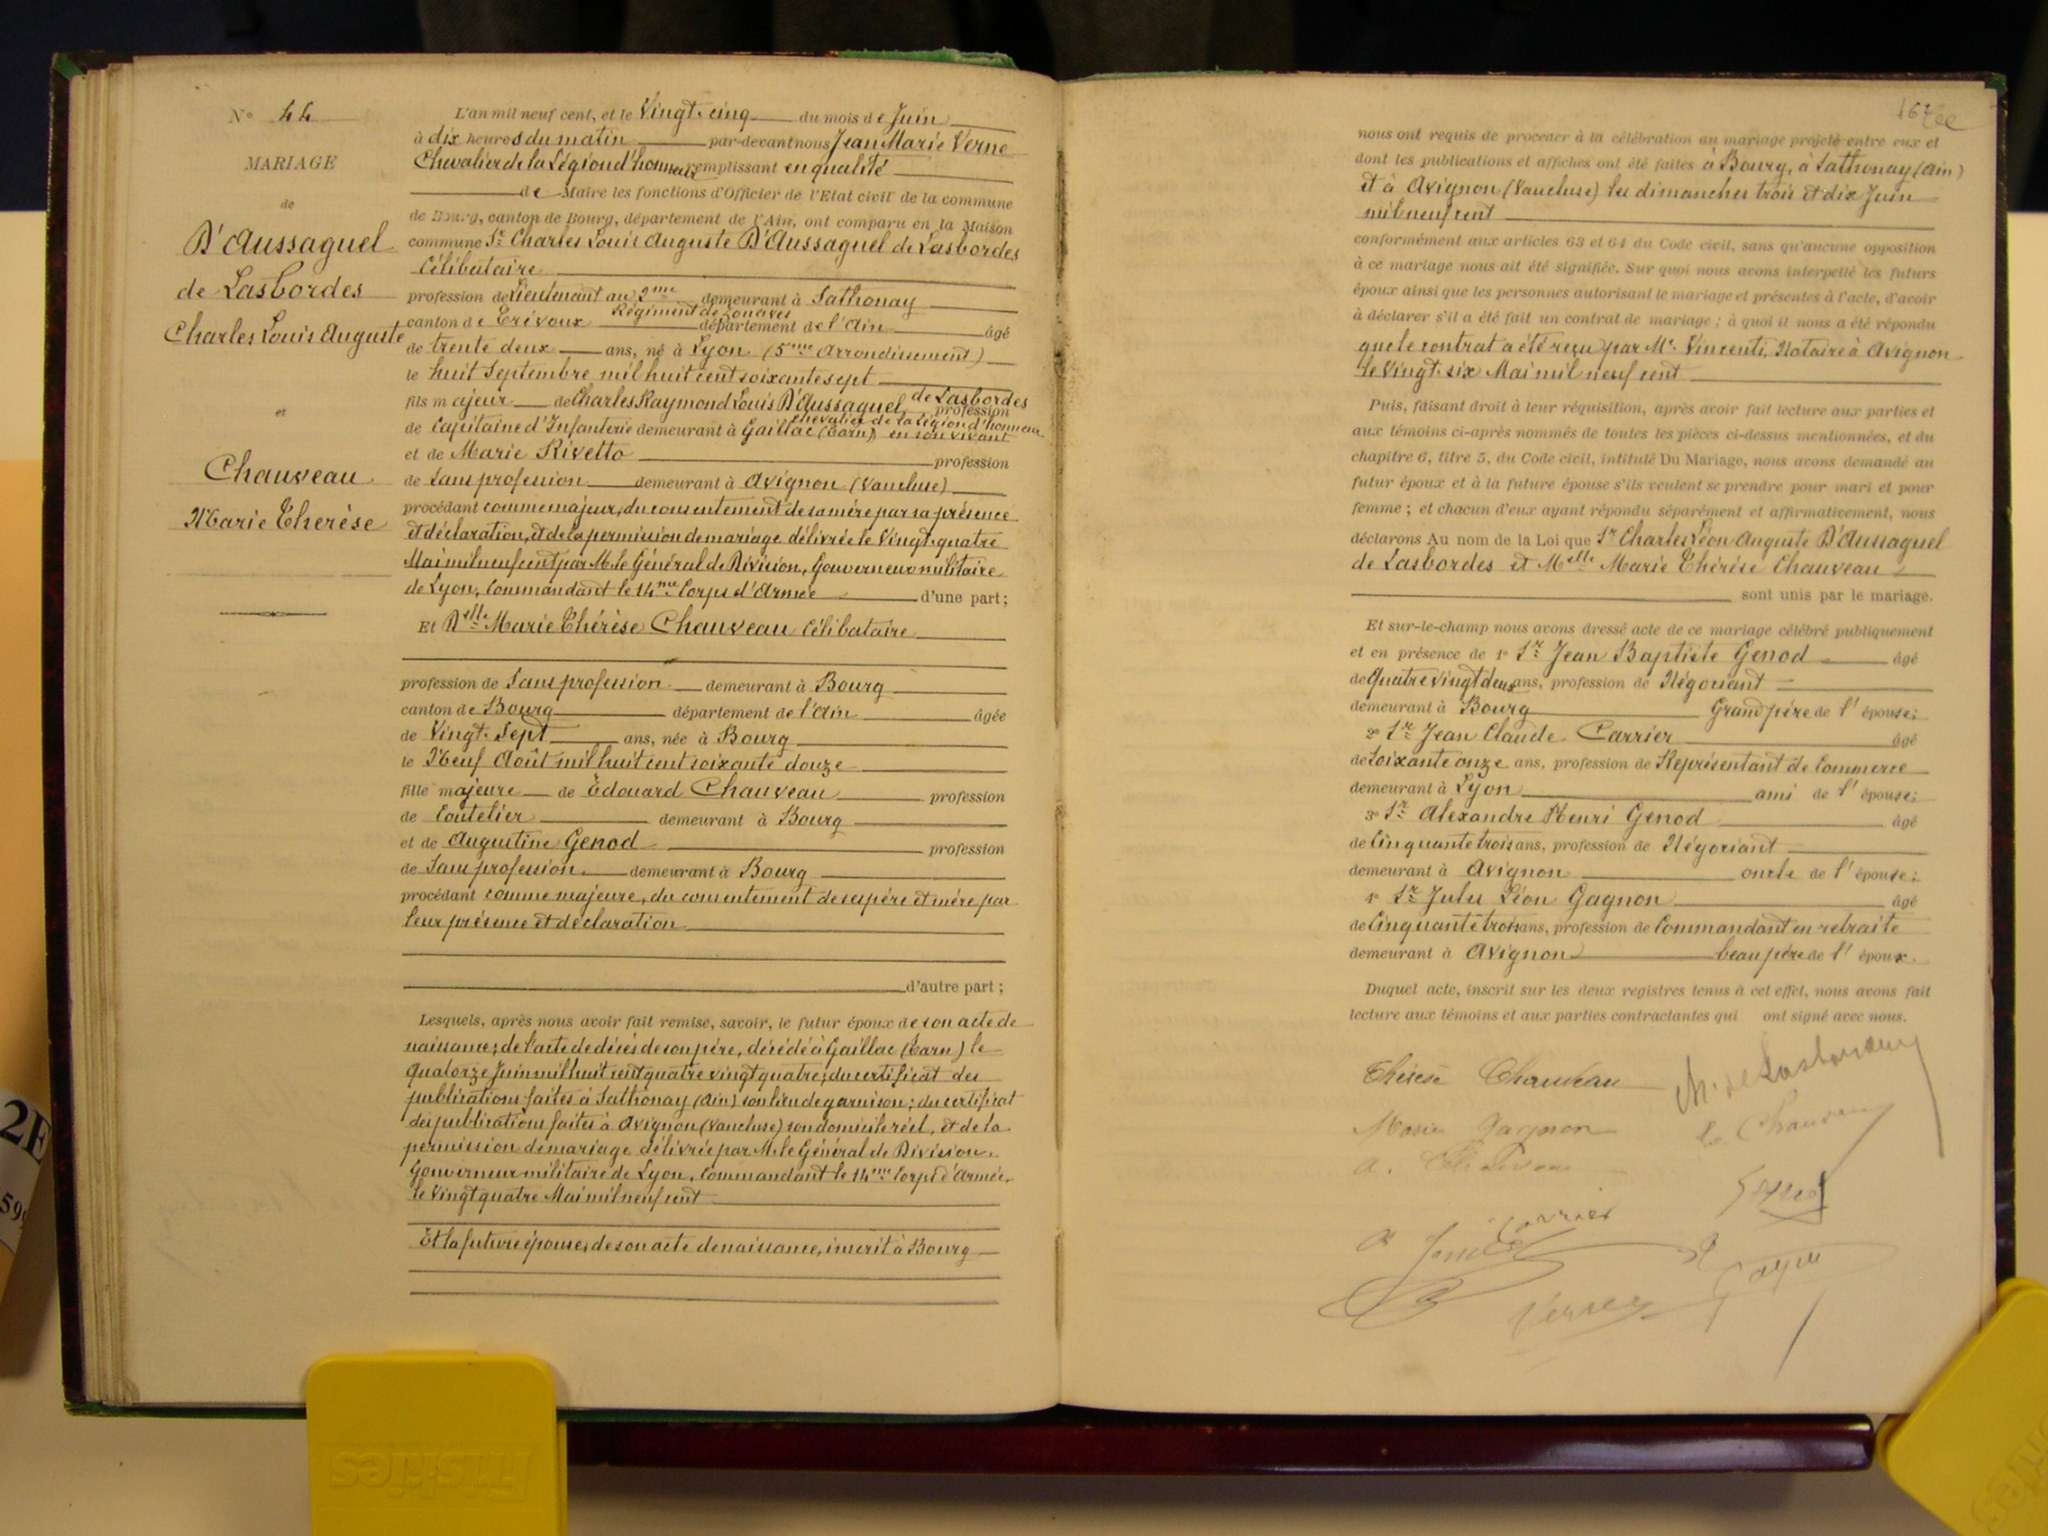 N° 44
MARIAGE
de
D'Aussaguel
de Lasbordes
Charles Louis Auguste
et
Chauveau
Marie Thérèse
L'an mil neuf cent, et le Vingt-cinq du mois de Juin
à dix heures du matin par-devant nous Jean Marie Verne
Chevalier de la Légion d'honneur remplissant en qualité
de Maire les fonctions d'Officier de l'Etat civil de la commune
de Bourg, canton de Bourg, département de l'Ain, ont comparu en la Maison
commune Sr Charles Louis Auguste D'Aussaguel de Lasbordes
Célibataire
profession de Lieutenant au 2me Régiment de Zouaves demeurant à Sathonay
canton de Trévoux département de l'Ain âgé
de trente deux ans, né à Lyon (5me Arrondissement)
le huit Septembre mil huit cent soixante sept
fils majeur de Charles Raymond Louis D'Aussaguel de Lasbordes profession
de Capitaine d'Infanterie Chevalier de la Légion d'honneur demeurant à Gaillac (Tarn) en son vivant
et de Marie Rivetto profession
de Sans profession demeurant à Avignon (Vaucluse)
procédant comme majeur, du consentement de sa mère par sa présence
et déclaration, et de la permission de mariage délivrée le Vingt-quatre
Mai mil neuf cent par M. le Général de Division, Gouverneur militaire
de Lyon, Commandant le 14me Corps d'Armée d'une part;
Et Delle Marie Thérèse Chauveau Célibataire
profession de Sans profession demeurant à Bourg
canton de Bourg département de l'Ain âgée
de Vingt-Sept ans, née à Bourg
le Neuf Août mil huit cent soixante douze
fille majeure de Edouard Chauveau profession
de Coutelier demeurant à Bourg
et de Augustine Genod profession
de Sans profession demeurant à Bourg
procédant comme majeure, du consentement de ses père et mère par
leur présence et déclaration
d'autre part;
Lesquels, après nous avoir fait remise, savoir, le futur époux de son acte de
naissance; de l'acte de décès de son père, décédé à Gaillac (Tarn) le
Quatorze Juin mil huit cent quatre vingt quatre; du certificat des
publications faites à Sathonay (Ain) son lieu de garnison; du certificat
des publications faites à Avignon (Vaucluse) son domicile réel, et de la
permission de mariage délivrée par M. le Général de Division,
Gouverneur militaire de Lyon, Commandant le 14me Corps d'Armée,
le Vingt quatre Mai mil neuf cent
Et la future épouse, de son acte de naissance, inscrit à Bourg
nous ont requis de procéder à la célébration au mariage projeté entre eux et
dont les publications et affiches ont été faites à Bourg, à Sathonay (Ain)
et à Avignon (Vaucluse) les dimanches trois et dix Juin
mil neuf cent
conformément aux articles 63 et 64 du Code civil, sans qu'aucune opposition
à ce mariage nous ait été signifiée. Sur quoi nous avons interpellé les futurs
époux ainsi que les personnes autorisant le mariage et présentes à l'acte, d'avoir
à déclarer s'il a été fait un contrat de mariage; à quoi il nous a été répondu
que le contrat a été reçu par Me. Vincenti, Notaire à Avignon
le Vingt-six Mai mil neuf cent
Puis, faisant droit à leur réquisition, après avoir fait lecture aux parties et
aux témoins ci-après nommés de toutes les pièces ci-dessus mentionnées, et du
chapitre 6, titre 5, du Code civil, intitulé Du Mariage, nous avons demandé au
futur époux et à la future épouse s'ils veulent se prendre pour mari et pour
femme; et chacun d'eux ayant répondu séparément et affirmativement, nous
déclarons Au nom de la Loi que Sr Charles Léon Auguste D'Aussaguel
de Lasbordes et Melle Marie Thérèse Chauveau
sont unis par le mariage.
Et sur-le-champ nous avons dressé acte de ce mariage célébré publiquement
et en présence de 1° Sr Jean Baptiste Genod âgé
de Quatre Vingt deux ans, profession de Négociant
demeurant à Bourg Grand père de l'épouse;
2° Sr Jean Claude Carrier âgé
de Soixante onze ans, profession de Représentant de Commerce
demeurant à Lyon ami de l'épouse;
3° Sr Alexandre Henri Genod âgé
de Cinquante trois ans, profession de Négociant
demeurant à Avignon oncle de l'épouse;
4° Sr Jules Léon Gagnon âgé
de Cinquante trois ans, profession de Commandant en retraite
demeurant à Avignon beau père de l'époux.
Duquel acte, inscrit sur les deux registres tenus à cet effet, nous avons fait
lecture aux témoins et aux parties contractantes qui ont signé avec nous.
Thérèse Chauveau
de Lasbordes
Marie Gagnon
Chauveau
A. Chauveau
Carrier
Verne
2E
59
Friskies